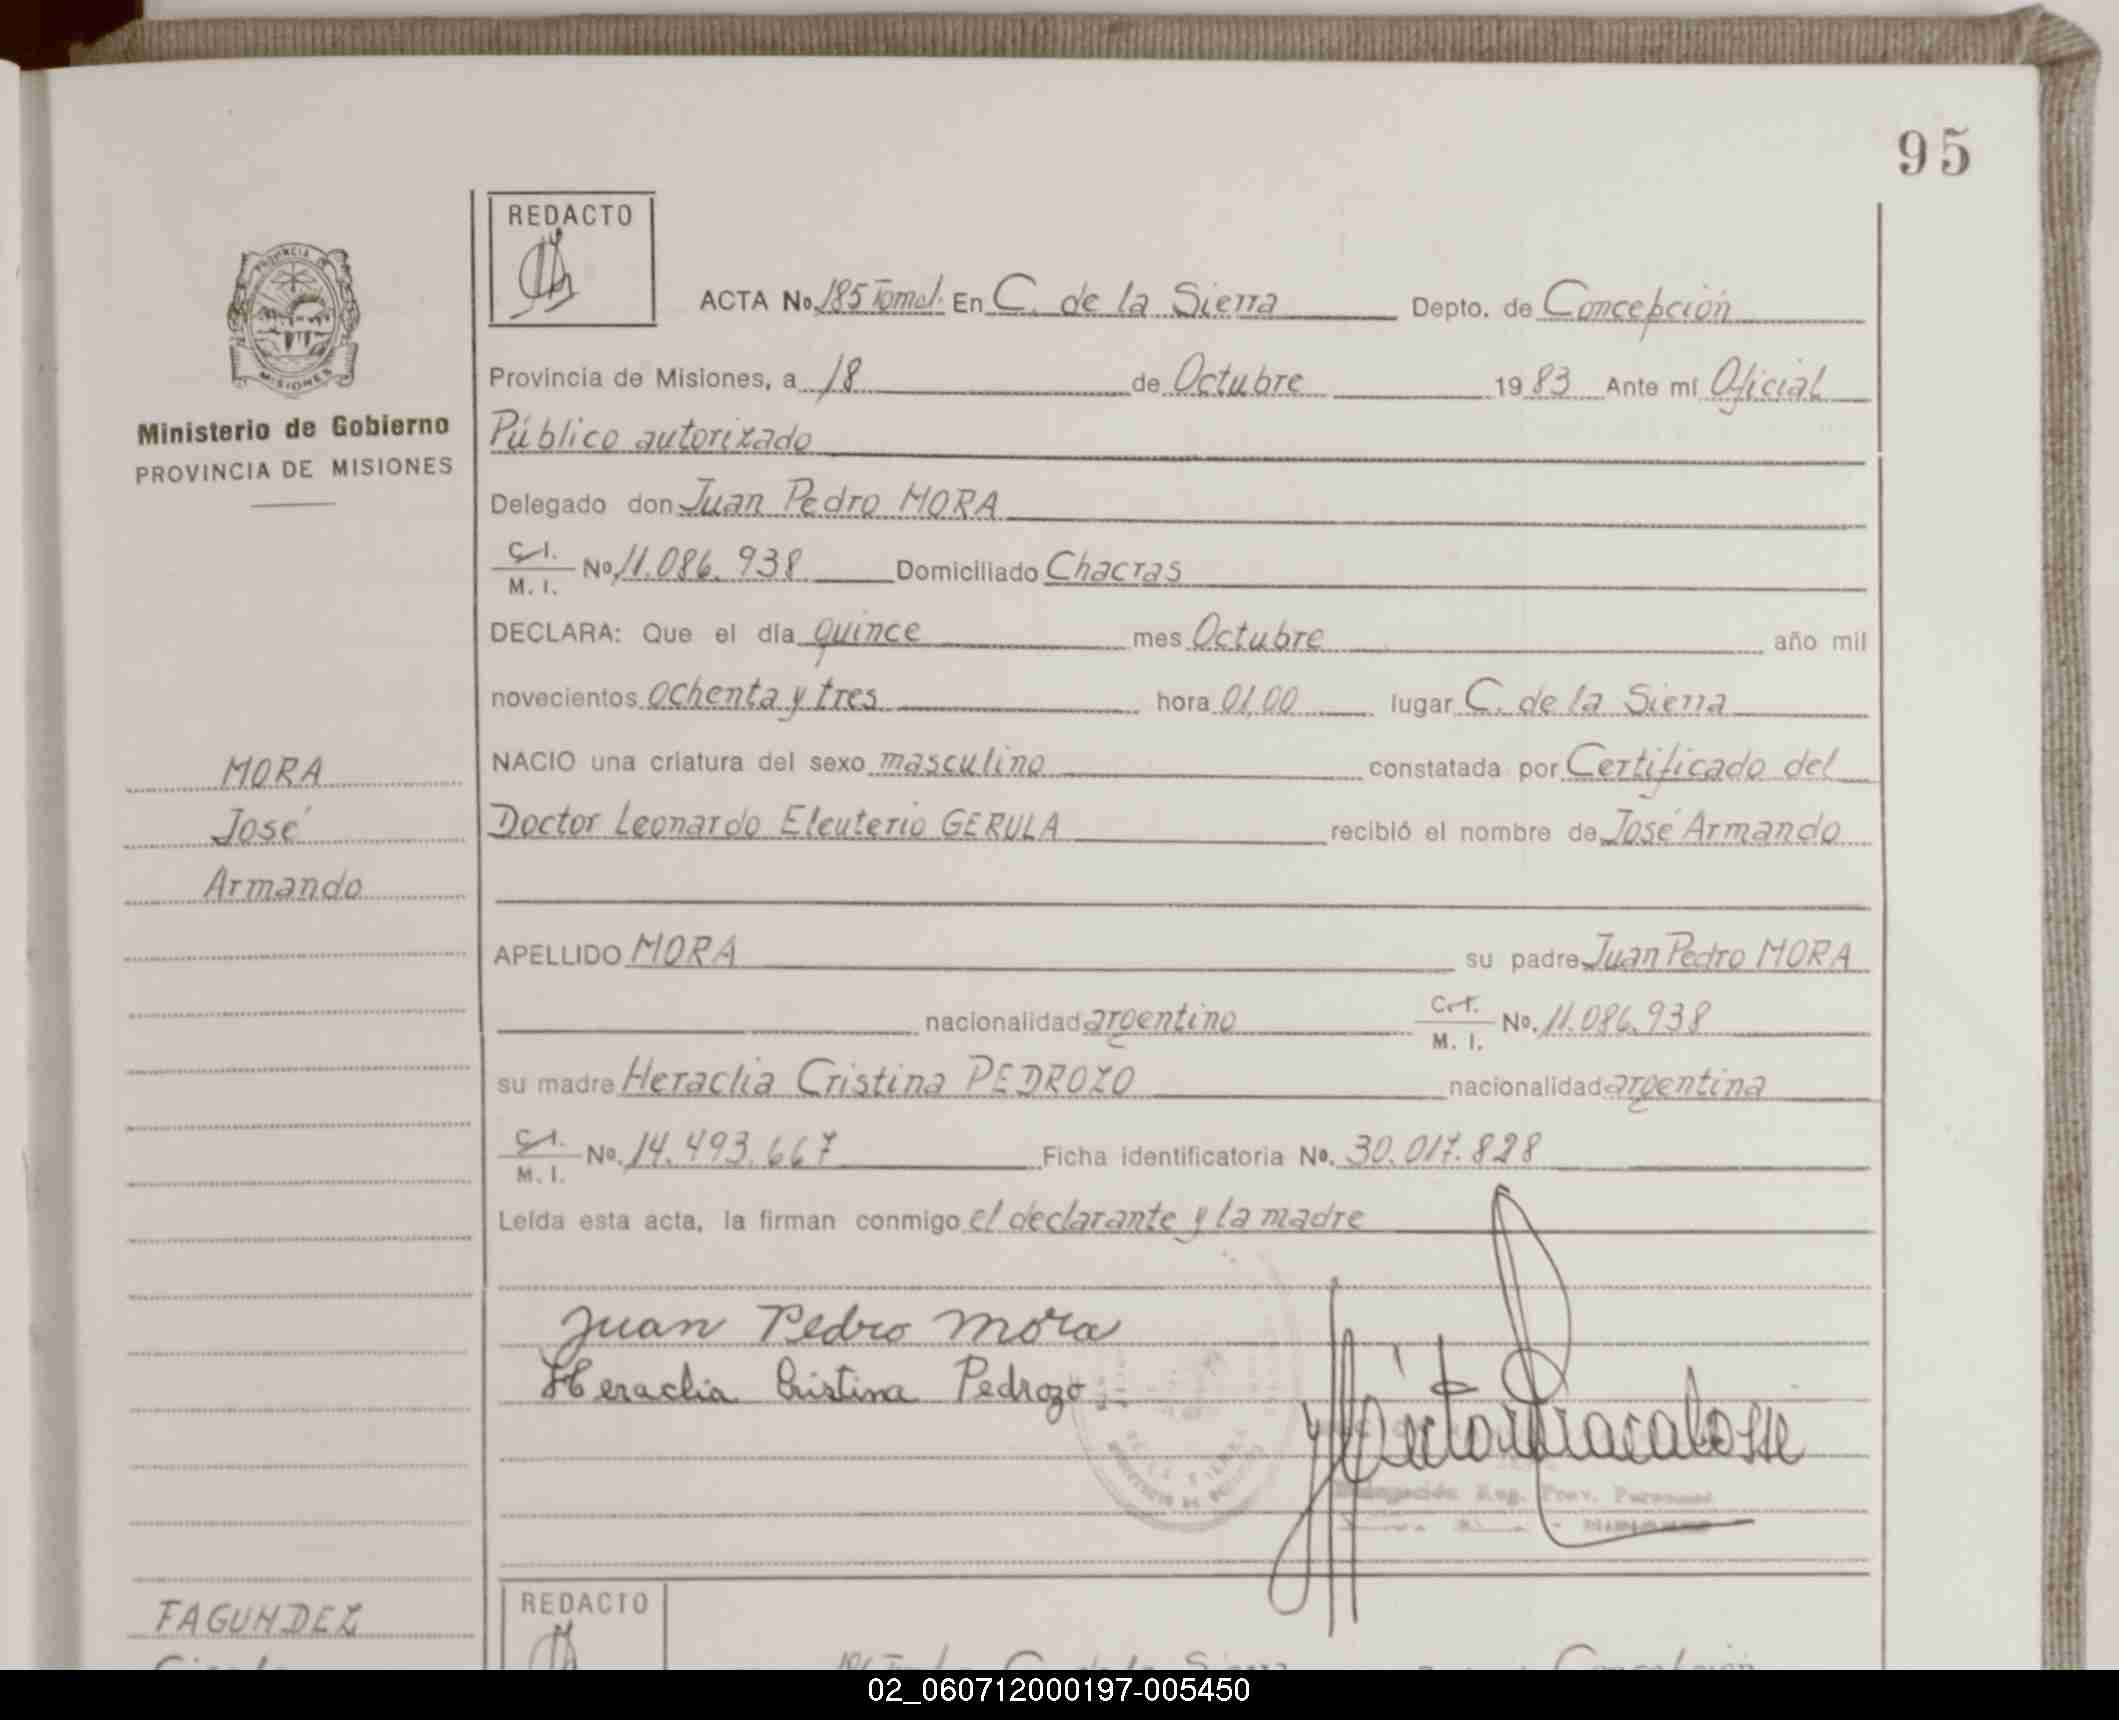 95
REDACTO
PROVINCIA DE
MISIONES
Ministerio de Gobierno
PROVINCIA DE MISIONES
ACTA No. 185 Tomo I. En C. de la Sierra Depto. de Concepción
Provincia de Misiones, a 18 de Octubre 1983 Ante mí Oficial
Público autorizado
Delegado don Juan Pedro MORA
C.I.
M. I. No. 11.086.938 Domiciliado Chacras
DECLARA: Que el día quince mes Octubre año mil
novecientos ochenta y tres hora 01,00 lugar C. de la Sierra
NACIO una criatura del sexo masculino constatada por Certificado del
Doctor Leonardo Eleuterio GERULA recibió el nombre de José Armando
MORA
José
Armando
APELLIDO MORA su padre Juan Pedro MORA
nacionalidad argentino C.I.
M. I. No. 11.086.938
su madre Heraclia Cristina PEDROZO nacionalidad argentina
C.I.
M. I. No. 14.493.667 Ficha identificatoria No. 30.017.828
Leída esta acta, la firman conmigo el declarante y la madre
Juan Pedro Mora
Heraclia Cristina Pedrozo
Reg. Prov. Personas
FAGUNDEZ
REDACTO
02_060712000197-005450